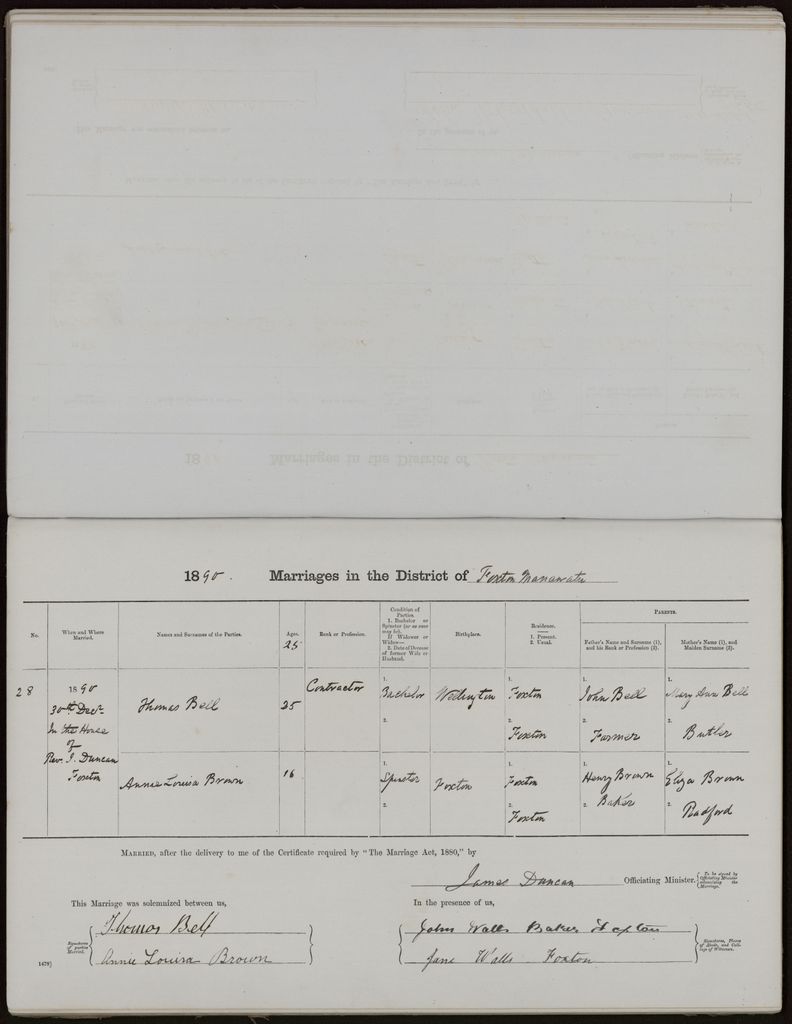 1890. Marriages in the District of Foxton Manawatu
PARENTS.
No.
When and Where Married.
Names and Surnames of the Parties.
Ages.
25
Rank or Profession.
Condition of Parties
1. Bachelor or Spinster (or as case may be).
If Widower or Widow—
2. Date of Decease of former Wife or Husband.
Birthplace.
Residence.
1. Present.
2. Usual.
Father's Name and Surname (1), and his Rank or Profession (2).
Mother's Name (1), and Maiden Surname (2).
28
1890
30th Decr
In the House
of
Rev. J. Duncan
Foxton
Thomas Bell
25
Contractor
1.
Bachelor
2.
Wellington
1.
Foxton
2.
Foxton
1.
John Bell
2.
Farmer
1.
Mary Ann Bell
2.
Butler
Annie Louisa Brown
16
1.
Spinster
2.
Foxton
1.
Foxton
2.
Foxton
1.
Henry Brown
2. Baker
1.
Eliza Brown
2.
Radford
MARRIED, after the delivery to me of the Certificate required by "The Marriage Act, 1880," by
James Duncan Officiating Minister.
To be signed by Officiating Minister solemnizing the Marriage.
This Marriage was solemnized between us,
In the presence of us,
Signatures of parties Married.
Thomas Bell
Annie Louisa Brown
John Walls Baker Foxton
Jane Walls Foxton
Signatures, Places of Abode, and Callings of Witnesses.
1479]